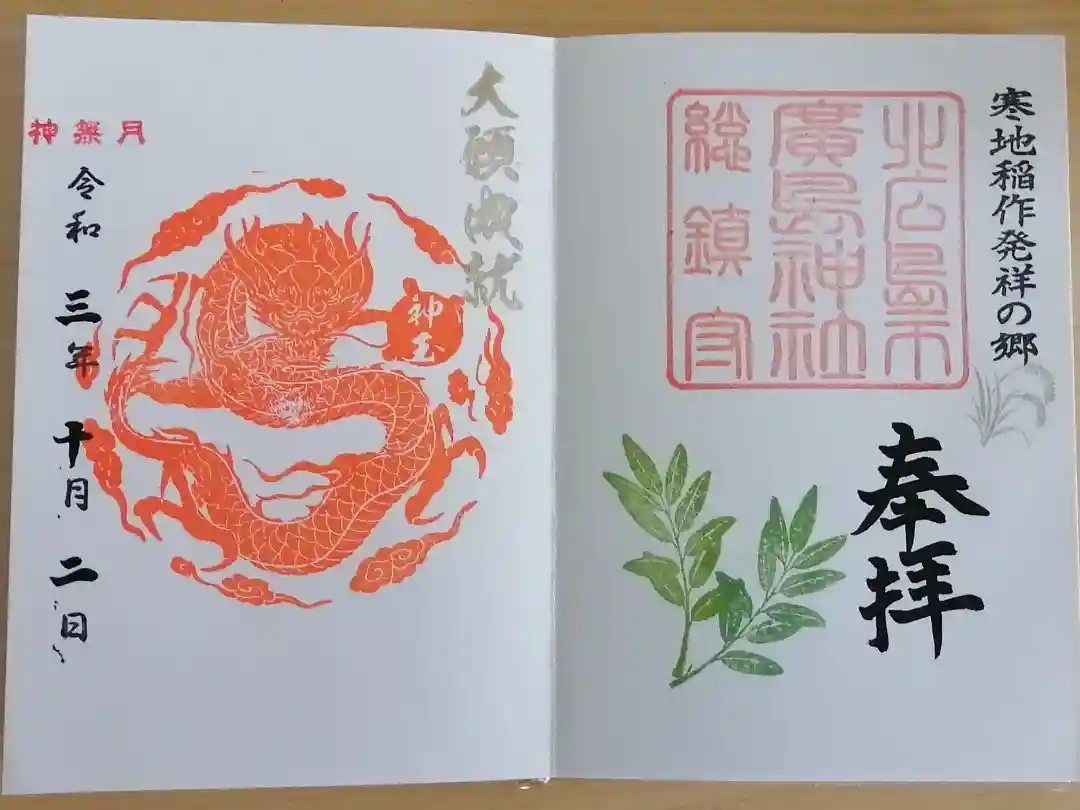 寒地稲作発祥の郷
北広島市
廣島神社
総鎮守
奉拝
大願成就
神玉
神無月
令和三年十月二日